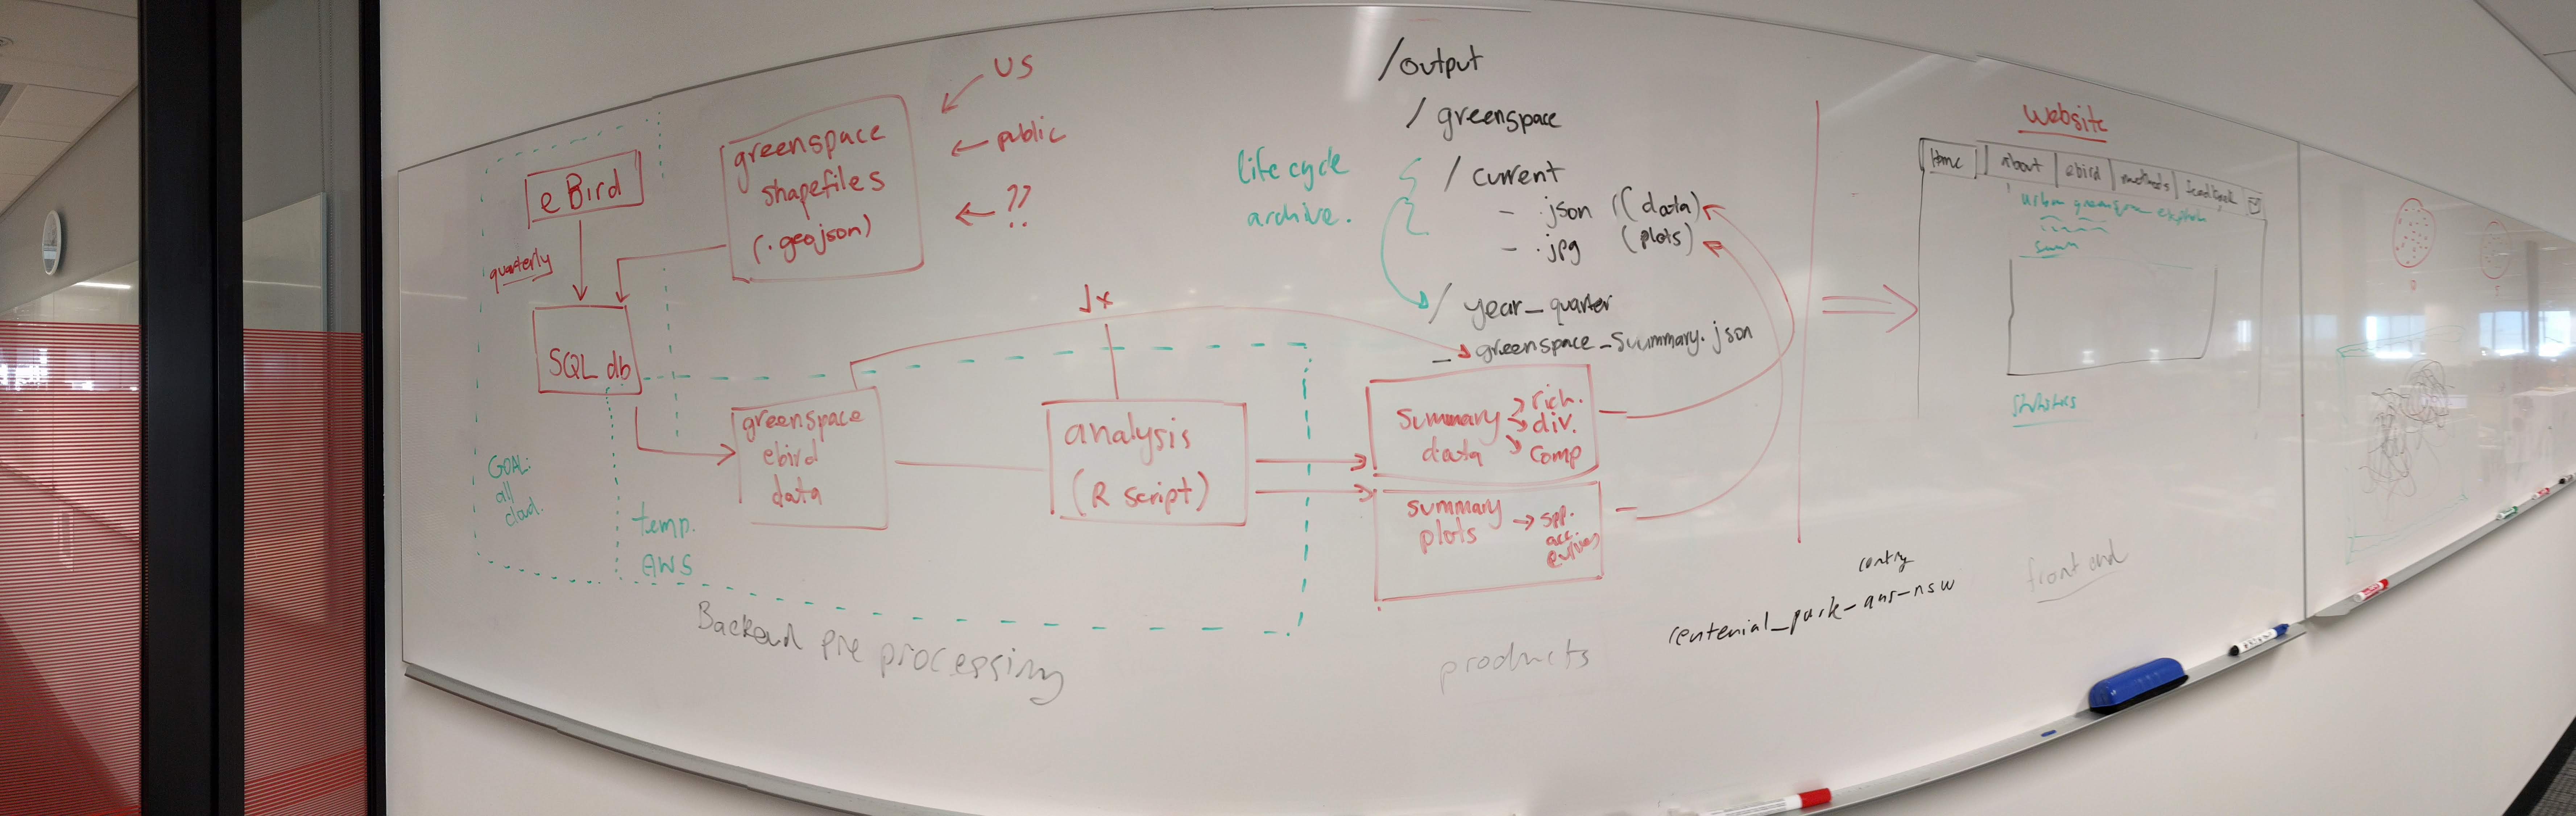 eBird
quarterly
SQL db
GOAL:
all
cloud.
temp.
AWS
greenspace
shapefiles
(.geojson)
US
← public
← ??
greenspace
ebird
data
analysis
(R script)
Backend pre processing
life cycle
archive.
/output
/ greenspace
/ current
- .json ((data)
- .jpg (plots)
/ year_quarter
- greenspace_summary.json
summary
data
→ rich.
→ div.
→ comp
summary
plots
→ spp.
acc.
products
centenial_park-aus-nsw
website
Home
about
ebird
methods
feedback
urban greenspace
statistics
front end